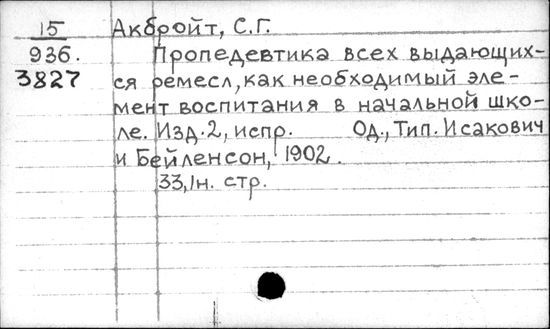 15 Акбройт, С.Г.
936. Пропедевтика всех выдающих-
3827 ся ремесл, как необходимый эле-
мент воспитания в начальной шко-
ле. Изд. 2, испр. Од., Тип. Исакович
и Бейленсон, 1902.
33, 1н. стр.